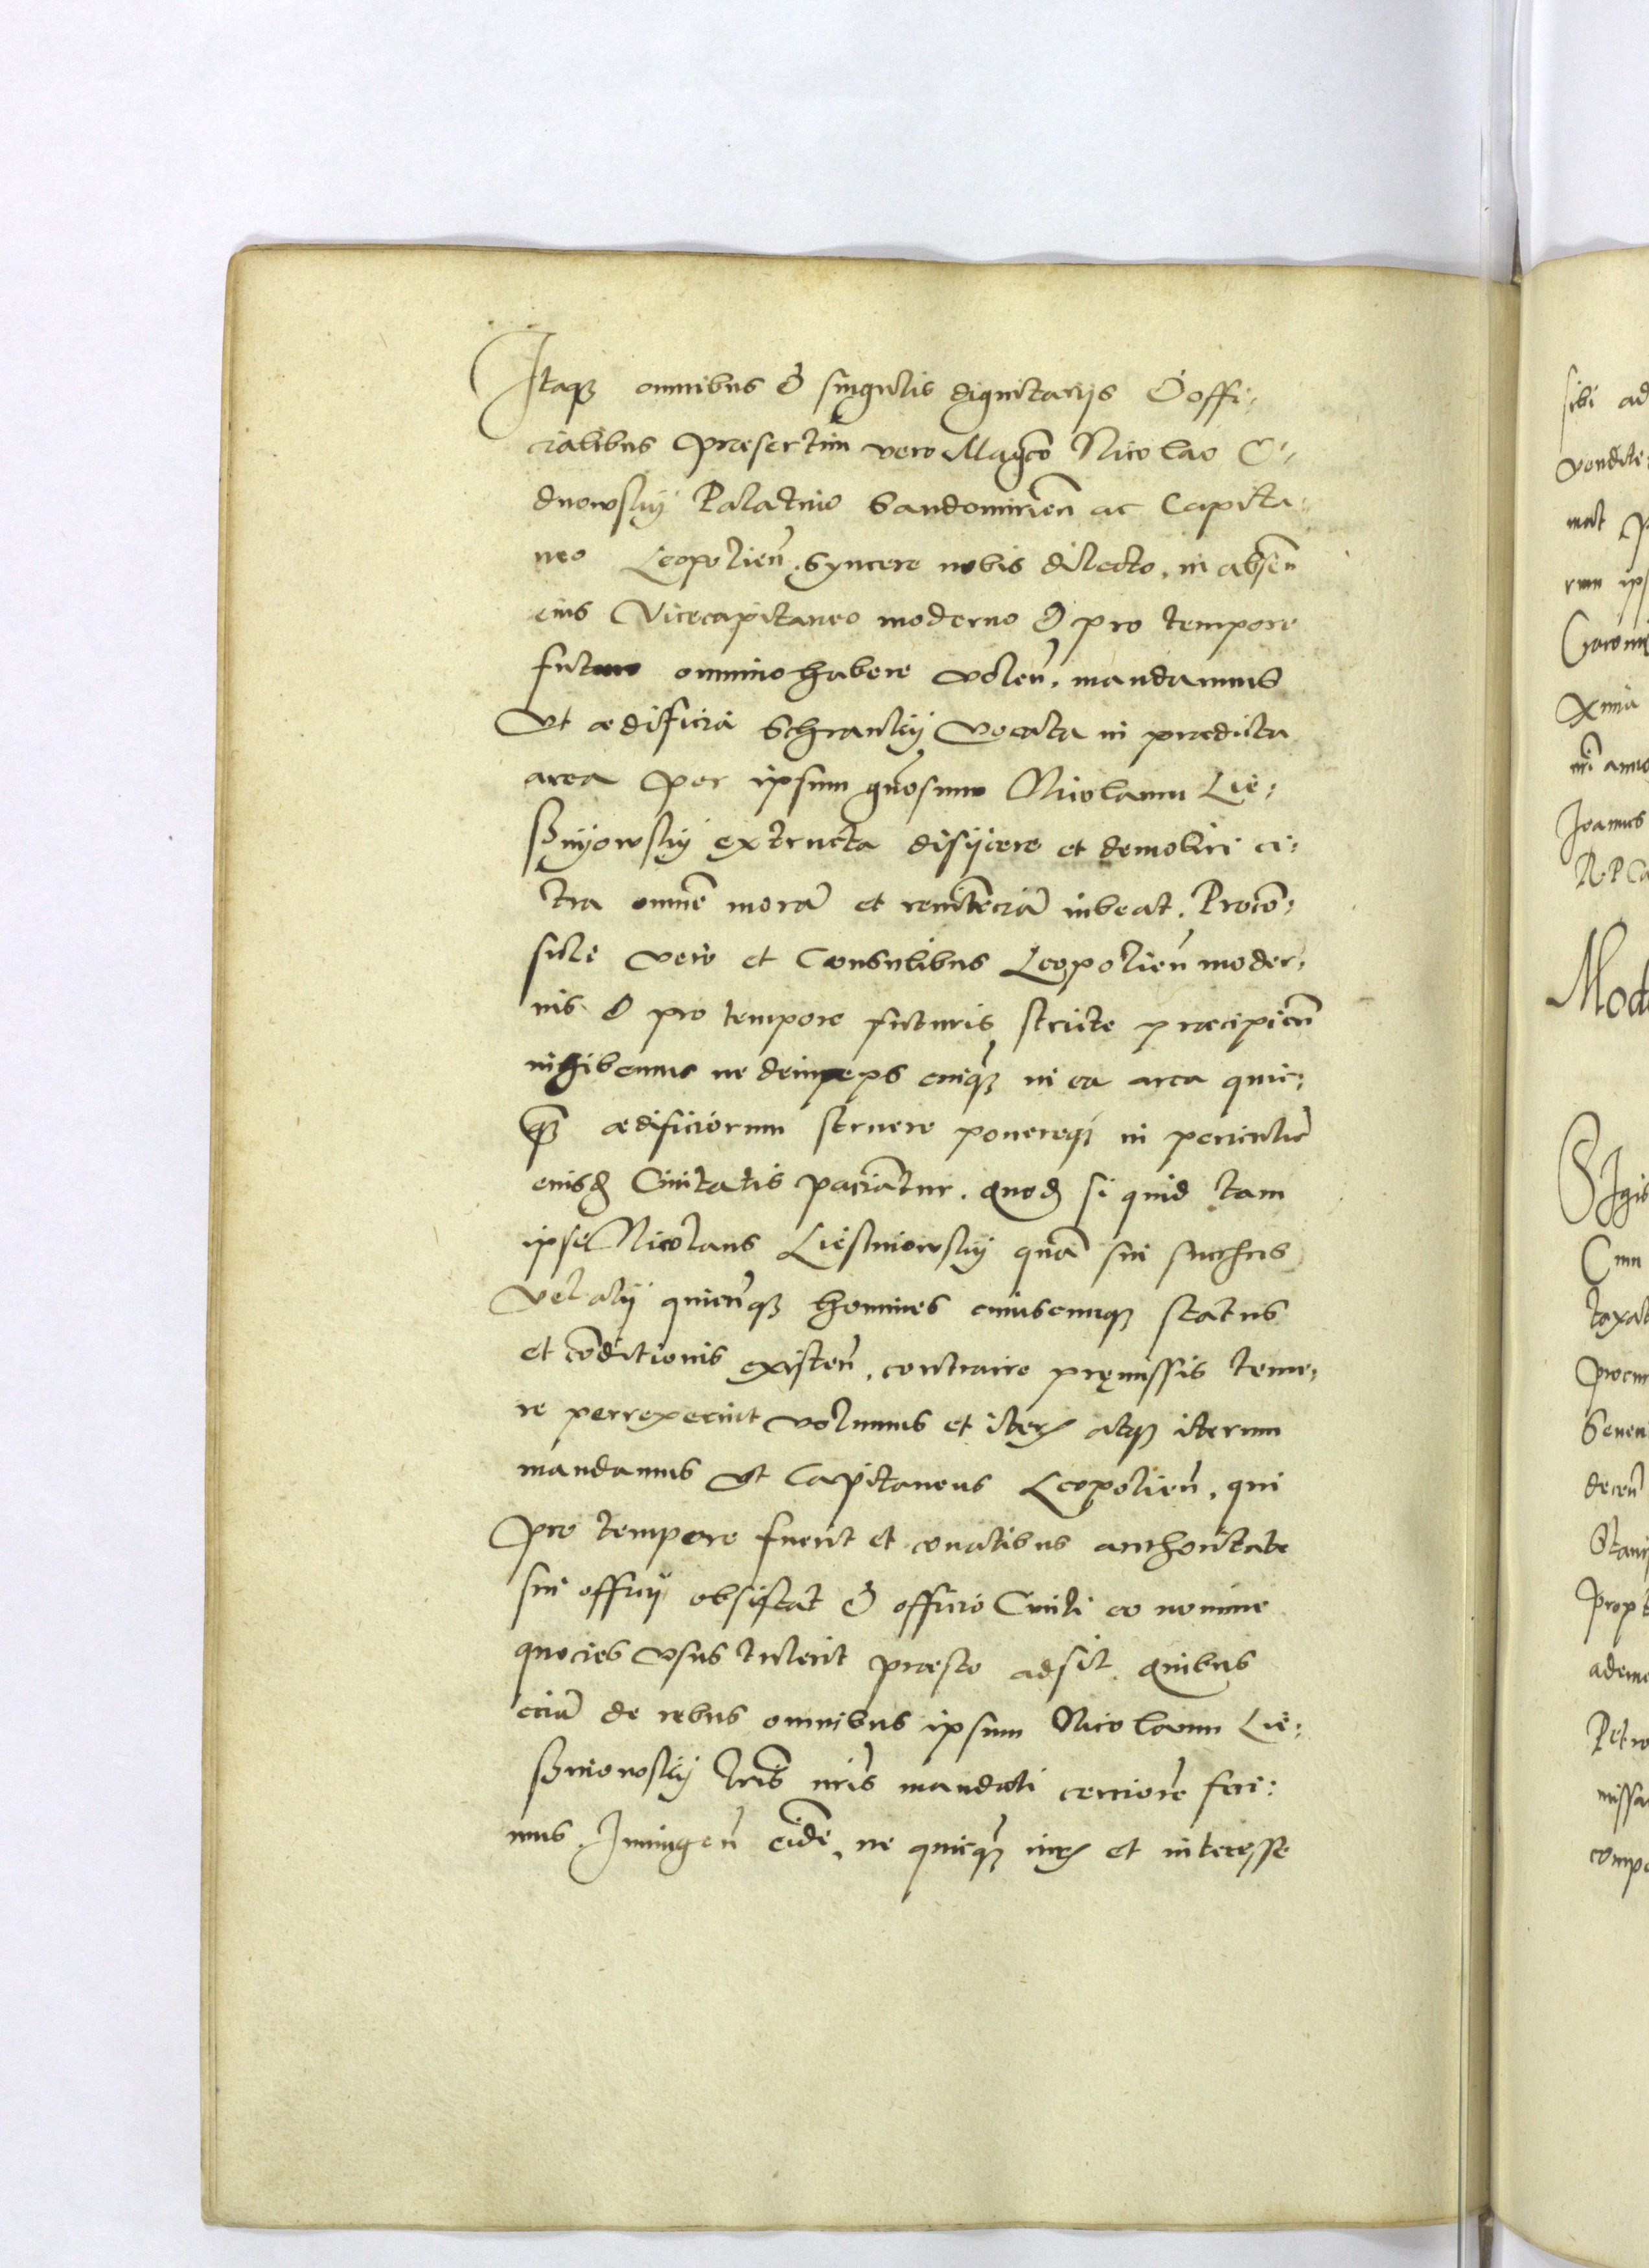 Itaqz omnibus & singulis dignitarijs & offi:
cialibus præsertim vero Magco Nicolao O:
dnowskij Palatino Sandomirien ac Capita:
neo Leopolien. Syncere nobis dilecto, in absen
eius Vicecapitaneo moderno & pro tempore
futuro omnino habere volen. mandamus
Vt ædificia Schranky vocata in prædicta
area per ipsum gnosum Nicolaum Lie:
sznyowskij extructa disijcere et demoliri ci:
tra omnē morā et renitēciā iubeat. Procon:
suli vero et Consulibus Leopolien moder:
nis & pro tempore futuris stricte præcipien
inhibemus ne deinceps cuiqz in ea area quic:
qz ædificiorum struere ponereqz in periculū
eiusd Ciuitatis paciātur. Quod si quid tam
ipse Nicolaus Liesniowskij quā sui succres
vel alij quicūqz homines cuiuscumqz status
et cōditionis existen. contraire pręmissis teme:
re perrexerint volumus et iterū atqz iterum
mandamus vt Capitaneus Leopolien. qui
pro tempore fuerit et conatibus authoritate
sui officij obsistat & officio Ciuili eo nomine
quocies vsus tulerit præsto adsit. Quibus
eciā de rebus omnibus ipsum Nicolaum Lie:
szniowskij lris nris mandati cerciorē feci:
mus. Iniungen eidē, ne quicqz iurū et interesse
sibi ad
vendite
mat p
rum ips
Cracouię
nri anno
Joannes
R. P. Ca
Mode
Sigis
Cum
taxat
procur
Seuen
decen
Stani
propt
ademe
Petro
missa
compa